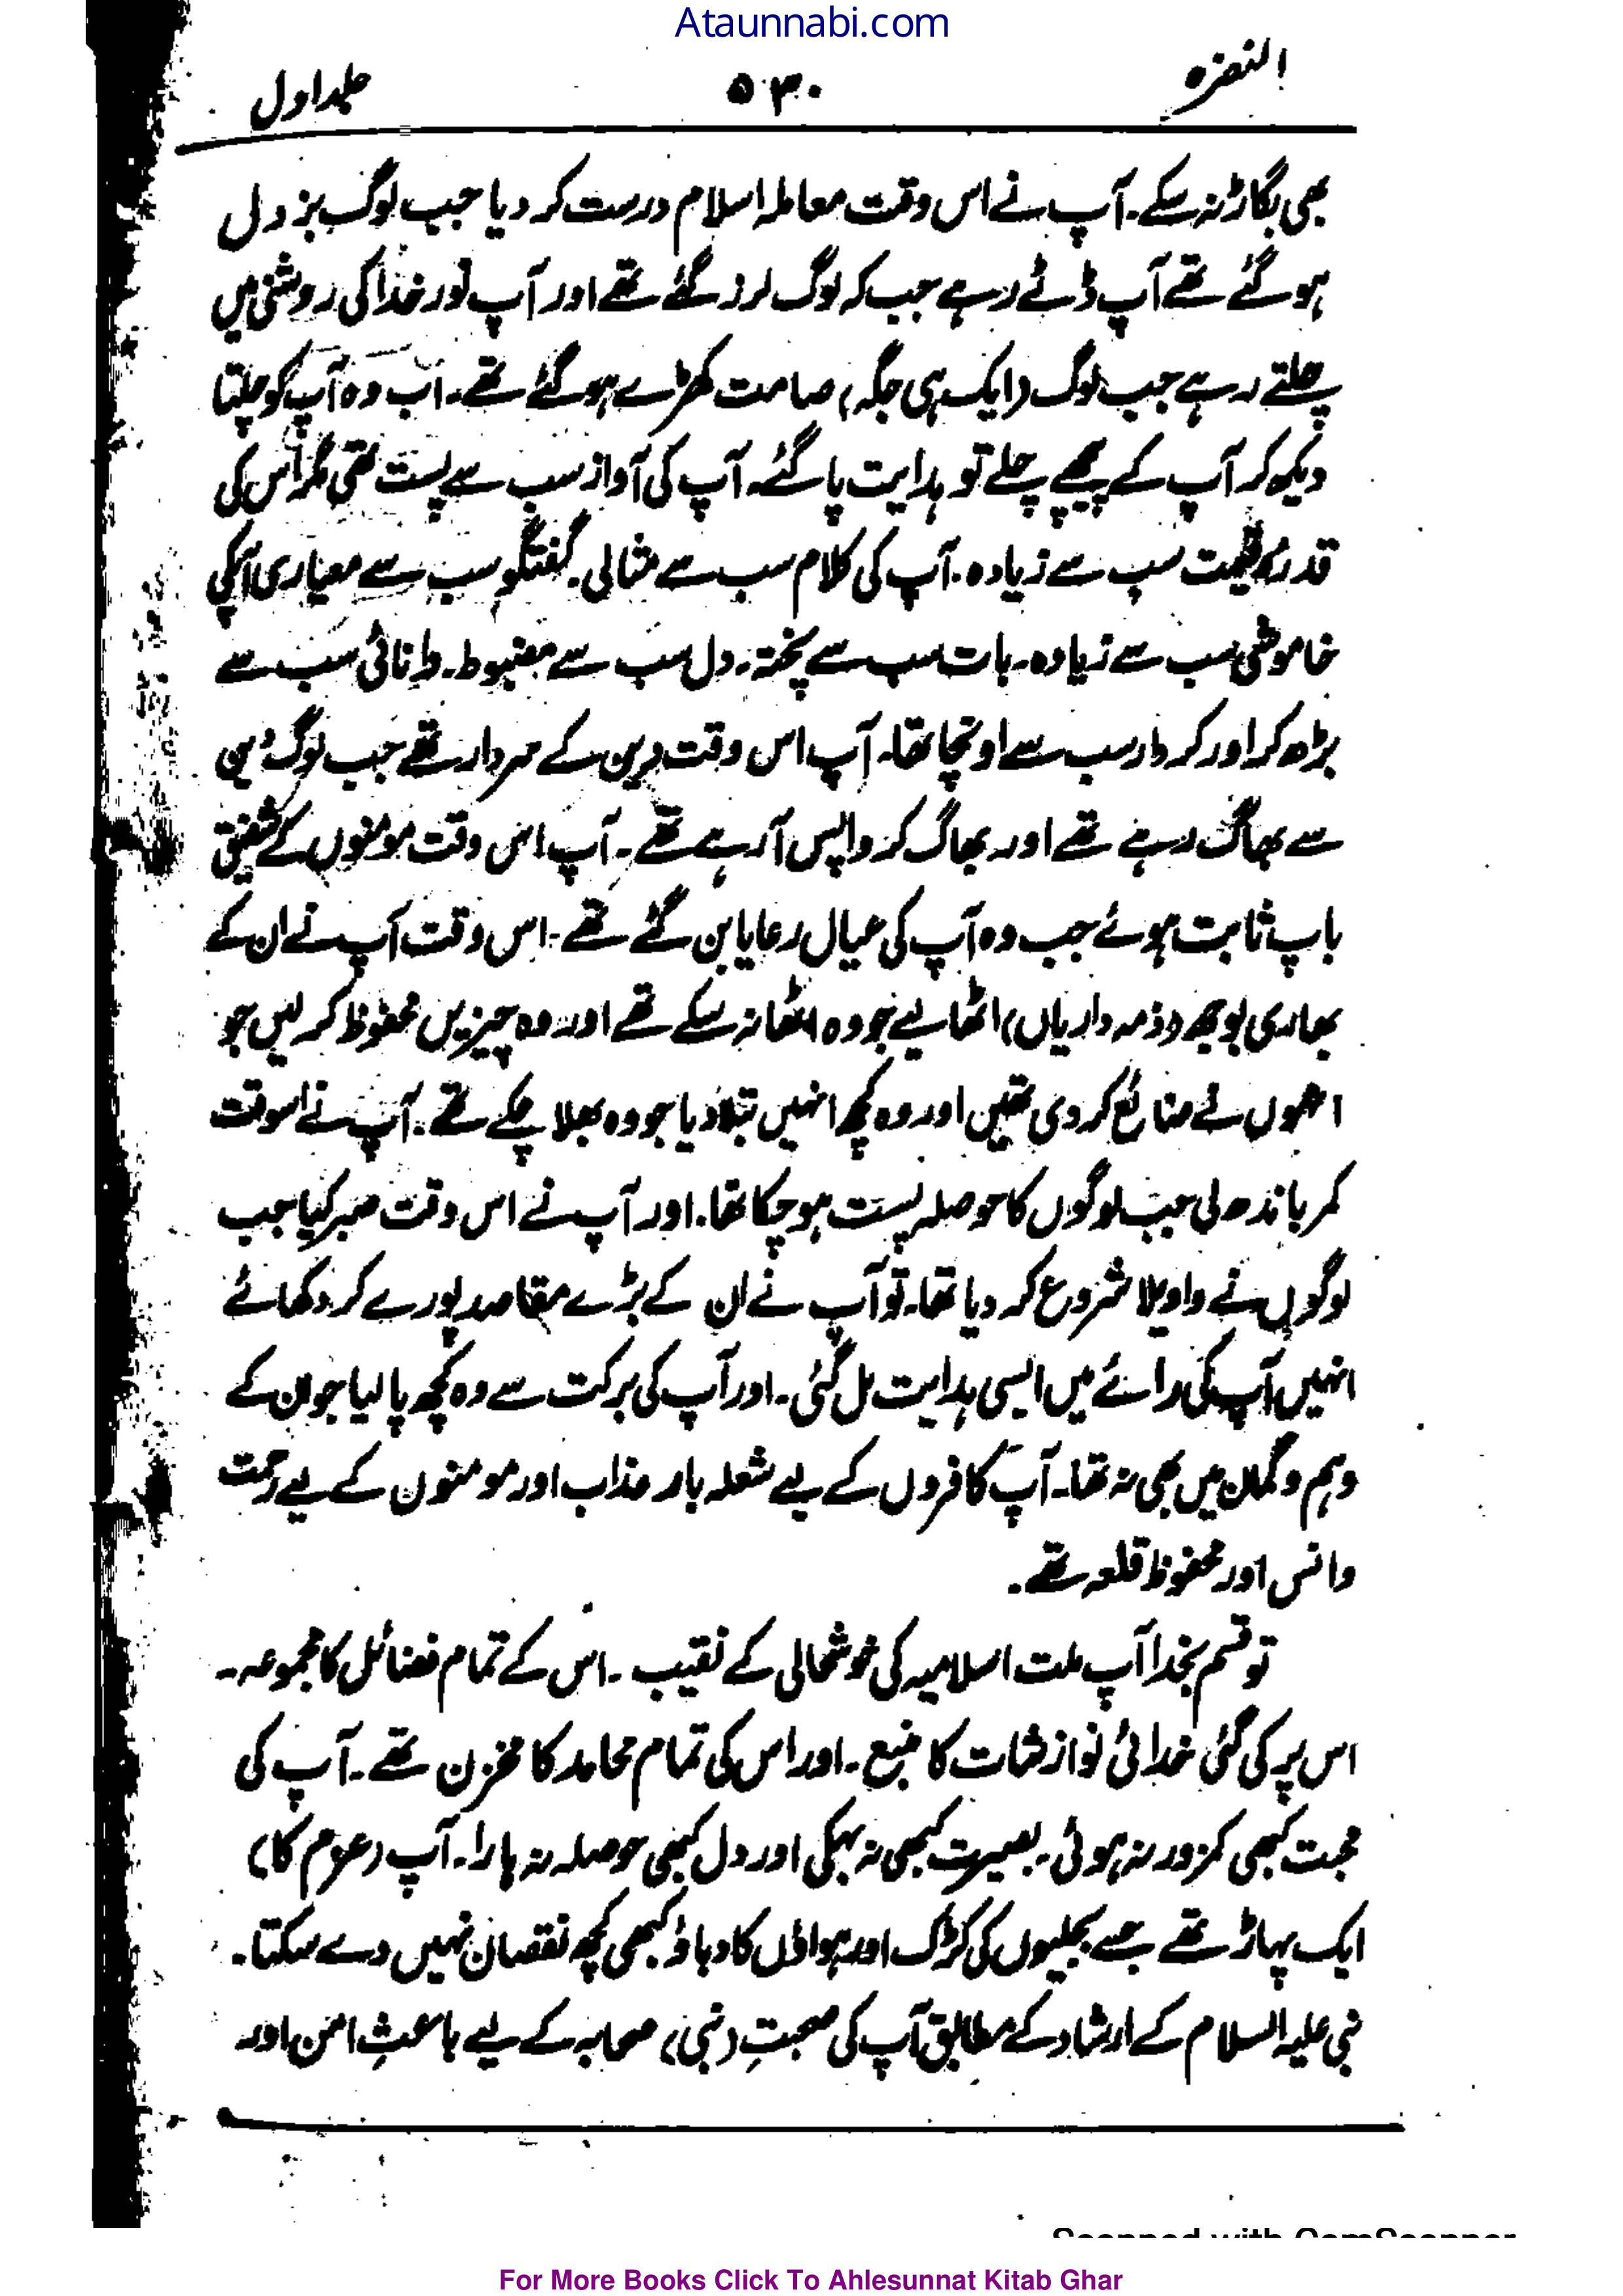 Ataunnabi.com
النضرہ ۵۳۰ جلد اول
بھی بگاڑ نہ سکے۔ آپ نے اس وقت معاملہ اسلام درست کر دیا جب لوگ بزدل
ہو گئے تھے آپ ڈٹے رہے جب کہ لوگ لرز گئے تھے اور آپ نور خدا کی روشنی میں
چلتے رہے جب لوگ (ایک ہی جگہ) صامت کھڑے ہو گئے تھے۔ اب وہ آپ کو چلتا
دیکھ کر آپ کے پیچھے چلے تو ہدایت پا گئے۔ آپ کی آواز سب سے پست تھی مگر اُس کی
قدر و قیمت سب سے زیادہ۔ آپ کی کلام سب سے مثالی۔ گفتگو سب سے معیاری آپکی
خاموشی سب سے زیادہ۔ بات سب سے پختہ۔ دل سب سے مضبوط۔ دانائی سب سے
بڑھ کر اور کردار سب سے اونچا تھا۔ آپ اس وقت دین کے سردار تھے جب لوگ دین
سے بھاگ رہے تھے اور بھاگ کر واپس آ رہے تھے۔ آپ اس وقت مومنوں کے شفیق
باپ ثابت ہوئے جب وہ آپ کی عیال رعایا بن گئے تھے۔ اس وقت آپ نے ان کے
بھاری بوجھ (ذمہ داریاں) اٹھا لیے جو وہ اٹھا نہ سکے تھے اور وہ چیزیں محفوظ کر لیں جو
انھوں نے ضائع کر دی تھیں اور وہ کچھ انہیں بتلا دیا جو وہ بھلا چکے تھے۔ آپ نے اسوقت
کمر باندھ لی جب لوگوں کا حوصلہ پست ہو چکا تھا۔ اور آپ نے اس وقت صبر کیا جب
لوگوں نے واویلا شروع کر دیا تھا۔ تو آپ نے ان کے بڑے مقاصد پورے کر دکھائے
انہیں آپ کی رائے میں ایسی ہدایت مل گئی۔ اور آپ کی برکت سے وہ کچھ پا لیا جو ان کے
وہم و گمان میں بھی نہ تھا۔ آپ کافروں کے لیے شعلہ بار عذاب اور مومنوں کے لیے رحمت
و انس اور محفوظ قلعہ تھے۔
تو قسم بخدا آپ ملت اسلامیہ کی خوشحالی کے نقیب۔ اس کے تمام فضائل کا مجموعہ۔
اس پر کی گئی خدائی نوازشات کا منبع۔ اور اس کی تمام محامد کا مخزن تھے۔ آپ کی
محبت کبھی کمزور نہ ہوئی۔ بصیرت کبھی نہ بہکی اور دل کبھی حوصلہ نہ ہارا۔ آپ (عزم کا)
ایک پہاڑ تھے جسے بجلیوں کی کڑک اور ہواؤں کا دباؤ کبھی کچھ نقصان نہیں دے سکتا۔
نبی علیہ السلام کے ارشاد کے مطابق آپ کی صحبتِ (نبی) صحابہ کے لیے باعثِ امن اور
Scanned with CamScanner
For More Books Click To Ahlesunnat Kitab Ghar